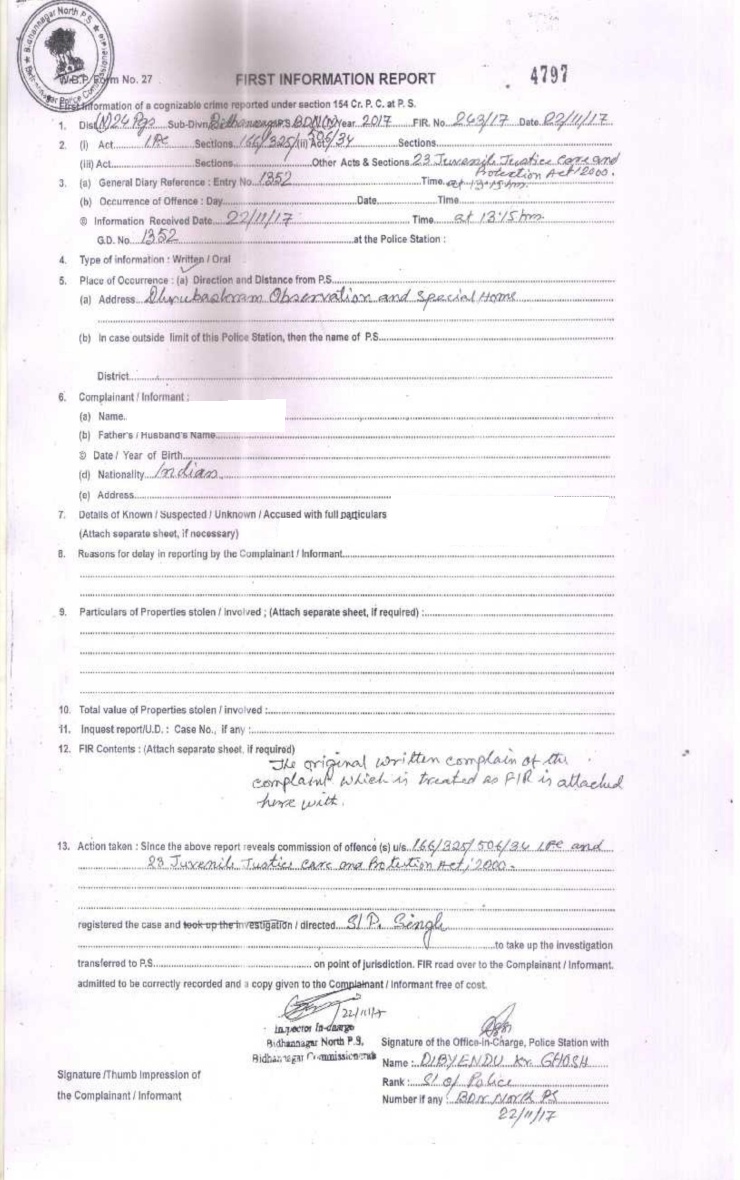 Bidhannagar North P.S.
W.B.P. Form No. 27
FIRST INFORMATION REPORT
4797
First Information of a cognizable crime reported under section 154 Cr. P. C. at P. S.
1. Dist (N) 24 Pgs Sub-Divn. Bidhannagar P.S. BDN(N) Year 2017 FIR. No. 263/17 Date 22/11/17
2. (i) Act IPC Sections 166/325/ (ii) Act 506/34 Sections
(iii) Act Sections Other Acts & Sections 23 Juvenile Justice Care and
Protection Act 2000.
3. (a) General Diary Reference : Entry No. 1352 Time at 13:15 hrs
(b) Occurrence of Offence : Day Date Time
© Information Received Date 22/11/17 Time at 13:15 hrs
G.D. No. 1352 at the Police Station :
4. Type of information : Written / Oral
5. Place of Occurrence : (a) Direction and Distance from P.S.
(a) Address Dhrubashram Observation and Special Home
(b) In case outside limit of this Police Station, then the name of P.S.
District
6. Complainant / Informant :
(a) Name.
(b) Father's / Husband's Name
© Date / Year of Birth
(d) Nationality Indian
(e) Address
7. Details of Known / Suspected / Unknown / Accused with full particulars
(Attach separate sheet, if necessary)
8. Reasons for delay in reporting by the Complainant / Informant
9. Particulars of Properties stolen / Involved ; (Attach separate sheet, if required) :
10. Total value of Properties stolen / involved :
11. Inquest report/U.D. : Case No., if any :
12. FIR Contents : (Attach separate sheet, if required)
The original written complain of the
complaint which is treated as FIR is attached
here with.
13. Action taken : Since the above report reveals commission of offence (s) u/s. 166/325/506/34 IPC and
23 Juvenile Justice Care and Protection Act, 2000.
registered the case and took up the investigation / directed SI P. Singh
to take up the investigation
transferred to P.S. on point of jurisdiction. FIR read over to the Complainant / Informant.
admitted to be correctly recorded and a copy given to the Complainant / Informant free of cost.
22/11/17
Inspector In-charge
Bidhannagar North P.S.
Bidhannagar Commissionerate
Signature of the Office-in-Charge, Police Station with
Name : DIBYENDU Kr. GHOSH
Rank : SI of Police
Number if any : BDN North PS
22/11/17
Signature /Thumb Impression of
the Complainant / Informant